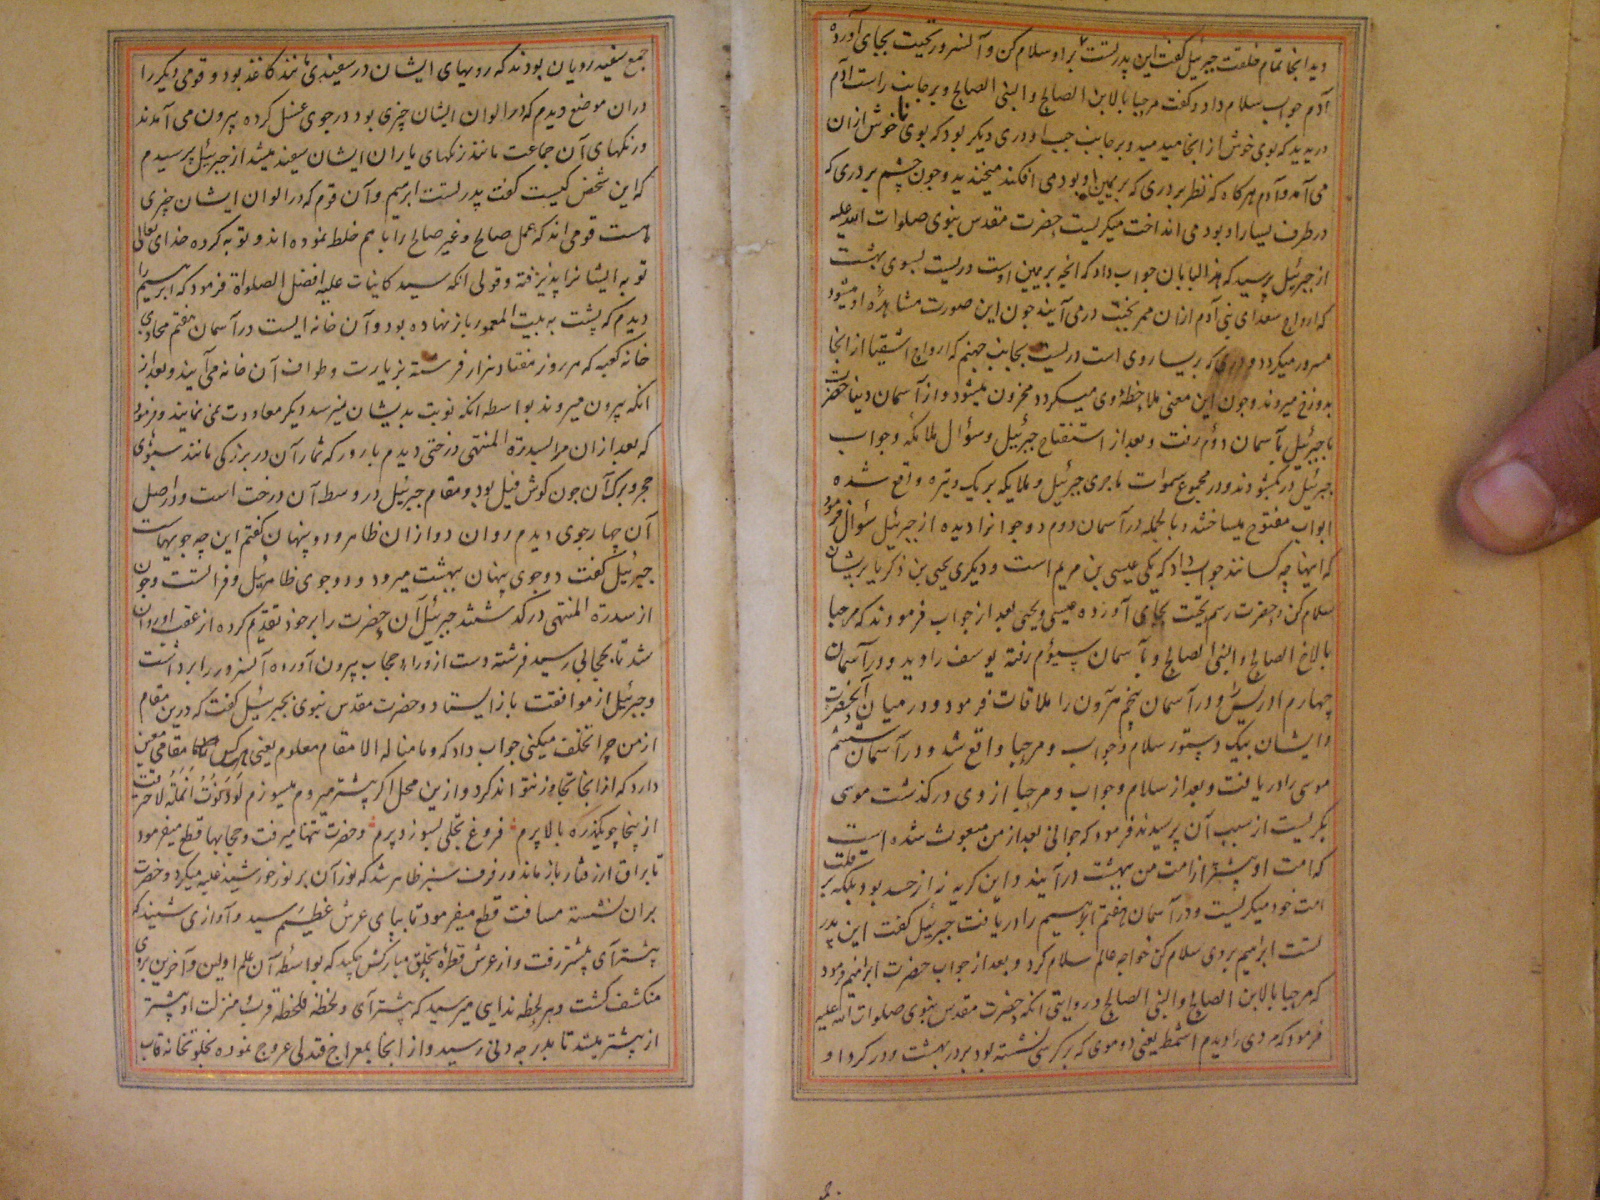 دید انجا تمام خلقت جبرئیل گفت این پدر تست برا و سلام کن و آنسرور تحیت بجای آورده
آدم جواب سلام داد و گفت مرحبا بالابن الصالح و النبی الصالح و بر جانب راست آدم
در یدید که بوی خوش از انجا میدمید و بر جانب چپ او دری دیگر بود که بوی ناخوش ازان
می آمد و آدم هر کاه که نظر بر دری که بر یمین او بود می افکند میخندید و چون چشم بر دری که
در طرف یسار او بود می انداخت میکریست حضرت مقدس نبوی صلوات الله علیه
از جبرئیل پرسید که هذا البابان جواب داد که انچه بر یمین اوست دریست بسوی بهشت
که ارواح سعدای بنی آدم ازان ممر بجنت در می آیند چون این صورت مشاهده او میشود
مسرور میکردد و دری که بر یسار وی است دریست بجانب جهنم که ارواح اشقیا از انجا
بدوزخ میروند و چون این معنی ملاحظه وی میکردد محزون میشود و از آسمان دنیا حضرت
با جبرئیل بآسمان دوم رفت و بعد از استفتاح جبرئیل و سؤال ملائکه و جواب
جبرئیل در بکشودند و در مجموع سموات ماجرای جبرئیل و ملایکه بر یک وتیره واقع شده
ابواب مفتوح میساختند و بالجمله در آسمان دوم دو جوانرا دیده از جبرئیل سئوال فرمود
که اینها چه کسانند جواب داد که یکی عیسی بن مریم است و دیگری یحیی بن ذکریا بریشان
سلام کن و حضرت رسم تحیت بجای آورده عیسی و یحیی بعد از جواب فرمودند که مرحبا
بالاخ الصالح و النبی الصالح و بآسمان سیؤم رفته یوسف را دید و در آسمان
چهارم ادریس و در آسمان پنجم هرون را ملاقات فرمود و در میان آنحضرت
و ایشان بیک دستور سلام و جواب و مرحبا واقع شد و در آسمان ششم
موسی را دریافت و بعد از سلام و جواب و مرحبا از وی در کذشت موسی
بکریست از سبب آن پرسیدند فرمود که جوانی بعد از من مبعوث شده است
که امت او پیشتر از امت من ببهشت در آیند و این کریه نه از حسد بود بلکه بر قلت
امت خود میکریست و در آسمان هفتم ابراهیم را دریافت جبرئیل گفت این پدر
تست ابراهیم بروی سلام کن خواجه عالم سلام کرد و بعد از جواب حضرت ابراهیم فرمود
که مرحبا بالابن الصالح و النبی الصالح و در روایتی انکه حضرت مقدس نبوی صلوات الله علیه
فرمود که مردی را دیدم اشمط یعنی دو موی که بر کرسی نشسته بود بر در بهشت و در کرد او
جمع سفید رویان بودند که رویهای ایشان در سفیدی مانند کاغذ بود و قومی دیکر را
دران موضع دیدم که در الوان ایشان چیزی بود در جوی غسل کرده بیرون می آمدند
و رنکهای آن جماعت مانند رنکهای یاران ایشان سفید میشد از جبرئیل پرسیدم
که این شخص کیست گفت پدر تست ابراهیم و آن قوم که در الوان ایشان چیزی
هست قومی اند که عمل صالح و غیر صالح را با هم خلط نموده اند و توبه کرده خدای تعالی
توبه ایشانرا پذیرفته و قولی انکه سید کاینات علیه افضل الصلواة فرمود که ابراهیم را
دیدم که پشت به بیت المعمور باز نهاده بود و آن خانه ایست در آسمان هفتم محاذی
خانه کعبه که هر روز هفتاد هزار فرشته بزیارت و طواف آن خانه می آیند و بعد از
انکه بیرون میروند بواسطه انکه نوبت بدیشان نمیرسد دیکر معاودت نمی نمایند و فرمود
که بعد ازان مرا بسدرة المنتهی درختی دیدم بارور که ثمار آن در بزرکی مانند سبوی
هجر و برک آن چون کوش فیل بود و مقام جبرئیل در وسط آن درخت است و در اصل
آن چهار جوی دیدم روان دو ازان ظاهر و دو پنهان گفتم این چه جویهاست
جبرئیل گفت دو جوی پنهان ببهشت میرود و دو جوی ظاهر نیل و فراتست و چون
از سدرة المنتهی در کذشتند جبرئیل آن حضرت را بر خود تقدیم کرده از عقب او روان
شد تا بحجابی رسید فرشته دست از وراء حجاب بیرون آورده آنسرور را برداشت
و جبرئیل از موافقت باز ایستاد و حضرت مقدس نبوی بجبرئیل گفت که درین مقام
از من چرا تخلف میکنی جواب داد که و ما منا له الا مقام معلوم یعنی هر کس مقامی معین
دارد که از انجا تجاوز نتواند کرد و ازین محل اکر پیشتر میروم میسوزم لو دنوت انملة لاحترقت
از پنجا چو یکذره بالا پرم فروغ تجلی بسوزد پرم و حضرت تنها میرفت و حجابها قطع میفرمود
تا براق از رفتار باز ماند و رفرف سبز ظاهر شد که نور آن بر نور خورشید غلبه میکرد و حضرت
بران نشسته مسافت قطع میفرمود تا بپای عرش عظیم رسید و آوازی شنید که
پیشتر آی پیشتر رفت و از عرش قطره بحلق مبارکش چکید که بواسطه آن علم اولین و آخرین بروی
منکشف کشت و هر لحظه ندایی میرسید که پیشتر آی و لحظه فلحظه قرب منزلت او پیشتر
از پیشتر میشد تا بدرجه دنی رسید و از انجا بمعراج فتدلی عروج نموده بخلوتخانه قاب